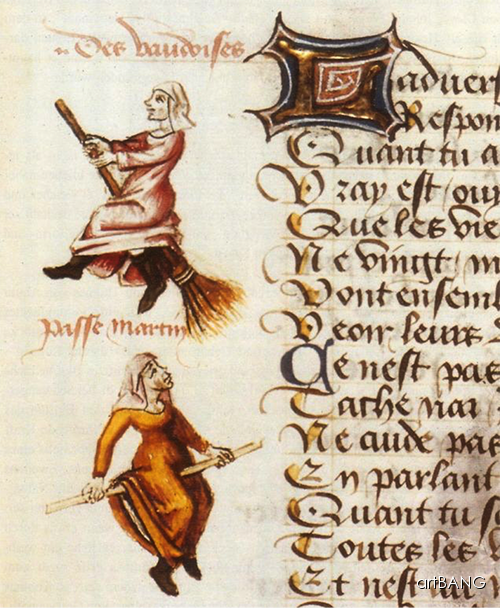 Des vaudoises
passe martin
aduers
Respon
Quant tu a
Vray est ouy
Que les vie
Ne vingt m
Vont ensem
Veoir leurs
Ce nest pas
Tache
Ne cuide pas
En parlant
Quant tu
Toutes les
Et nest
artBANG